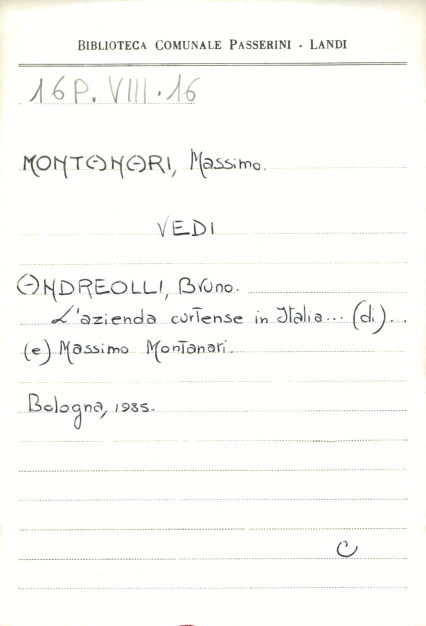 BIBLIOTECA COMUNALE PASSERINI - LANDI
16 P. VIII. 16
MONTANARI, Massimo.
VEDI
ANDREOLLI, Bruno.
L'azienda curtense in Italia... (di)...
(e) Massimo Montanari.
Bologna, 1985.
C